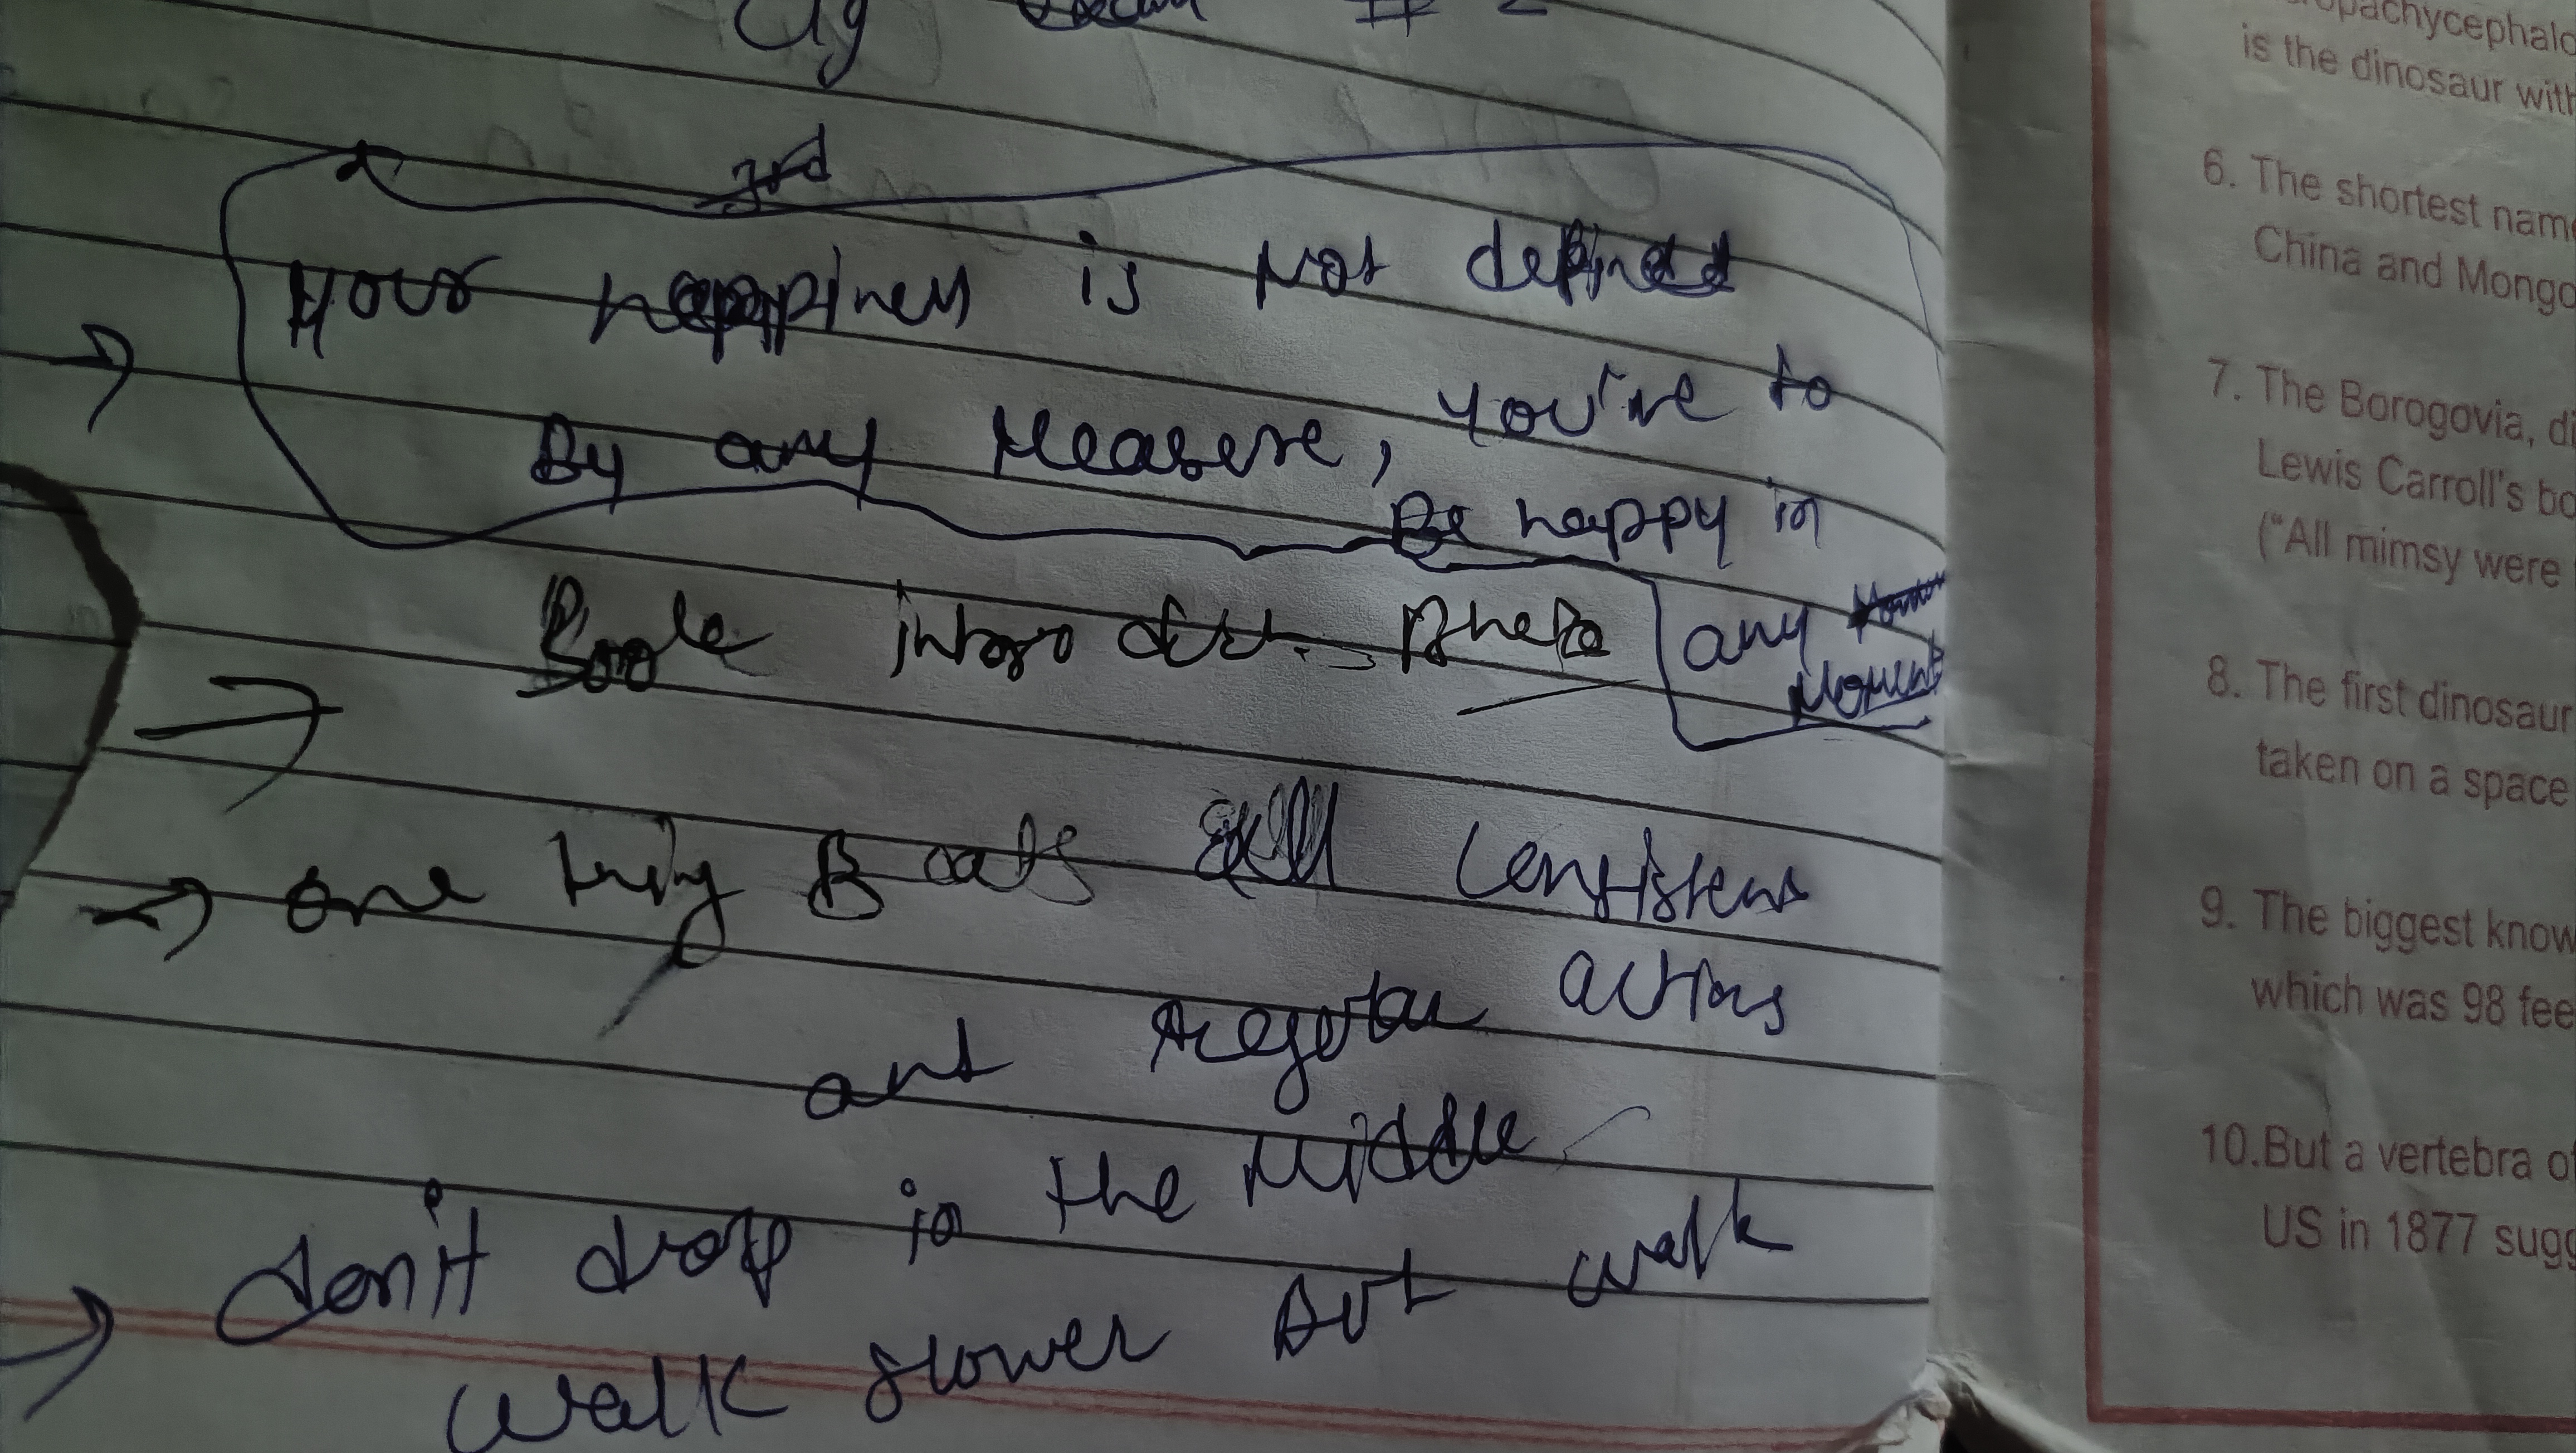 # 2
3rd
Your happiness is Not defined
By any Measere, you've to
Be happy in
any
Moment
one thing Beats all Consistens
and regular actions
don't drop in the Middle
walk slower But walk
opachycephalo
is the dinosaur with
6. The shortest name
China and Mongo
7. The Borogovia, di
Lewis Carroll's bo
("All mimsy were
8. The first dinosaur
taken on a space
9. The biggest know
which was 98 fee
10.But a vertebra of
US in 1877 sugg